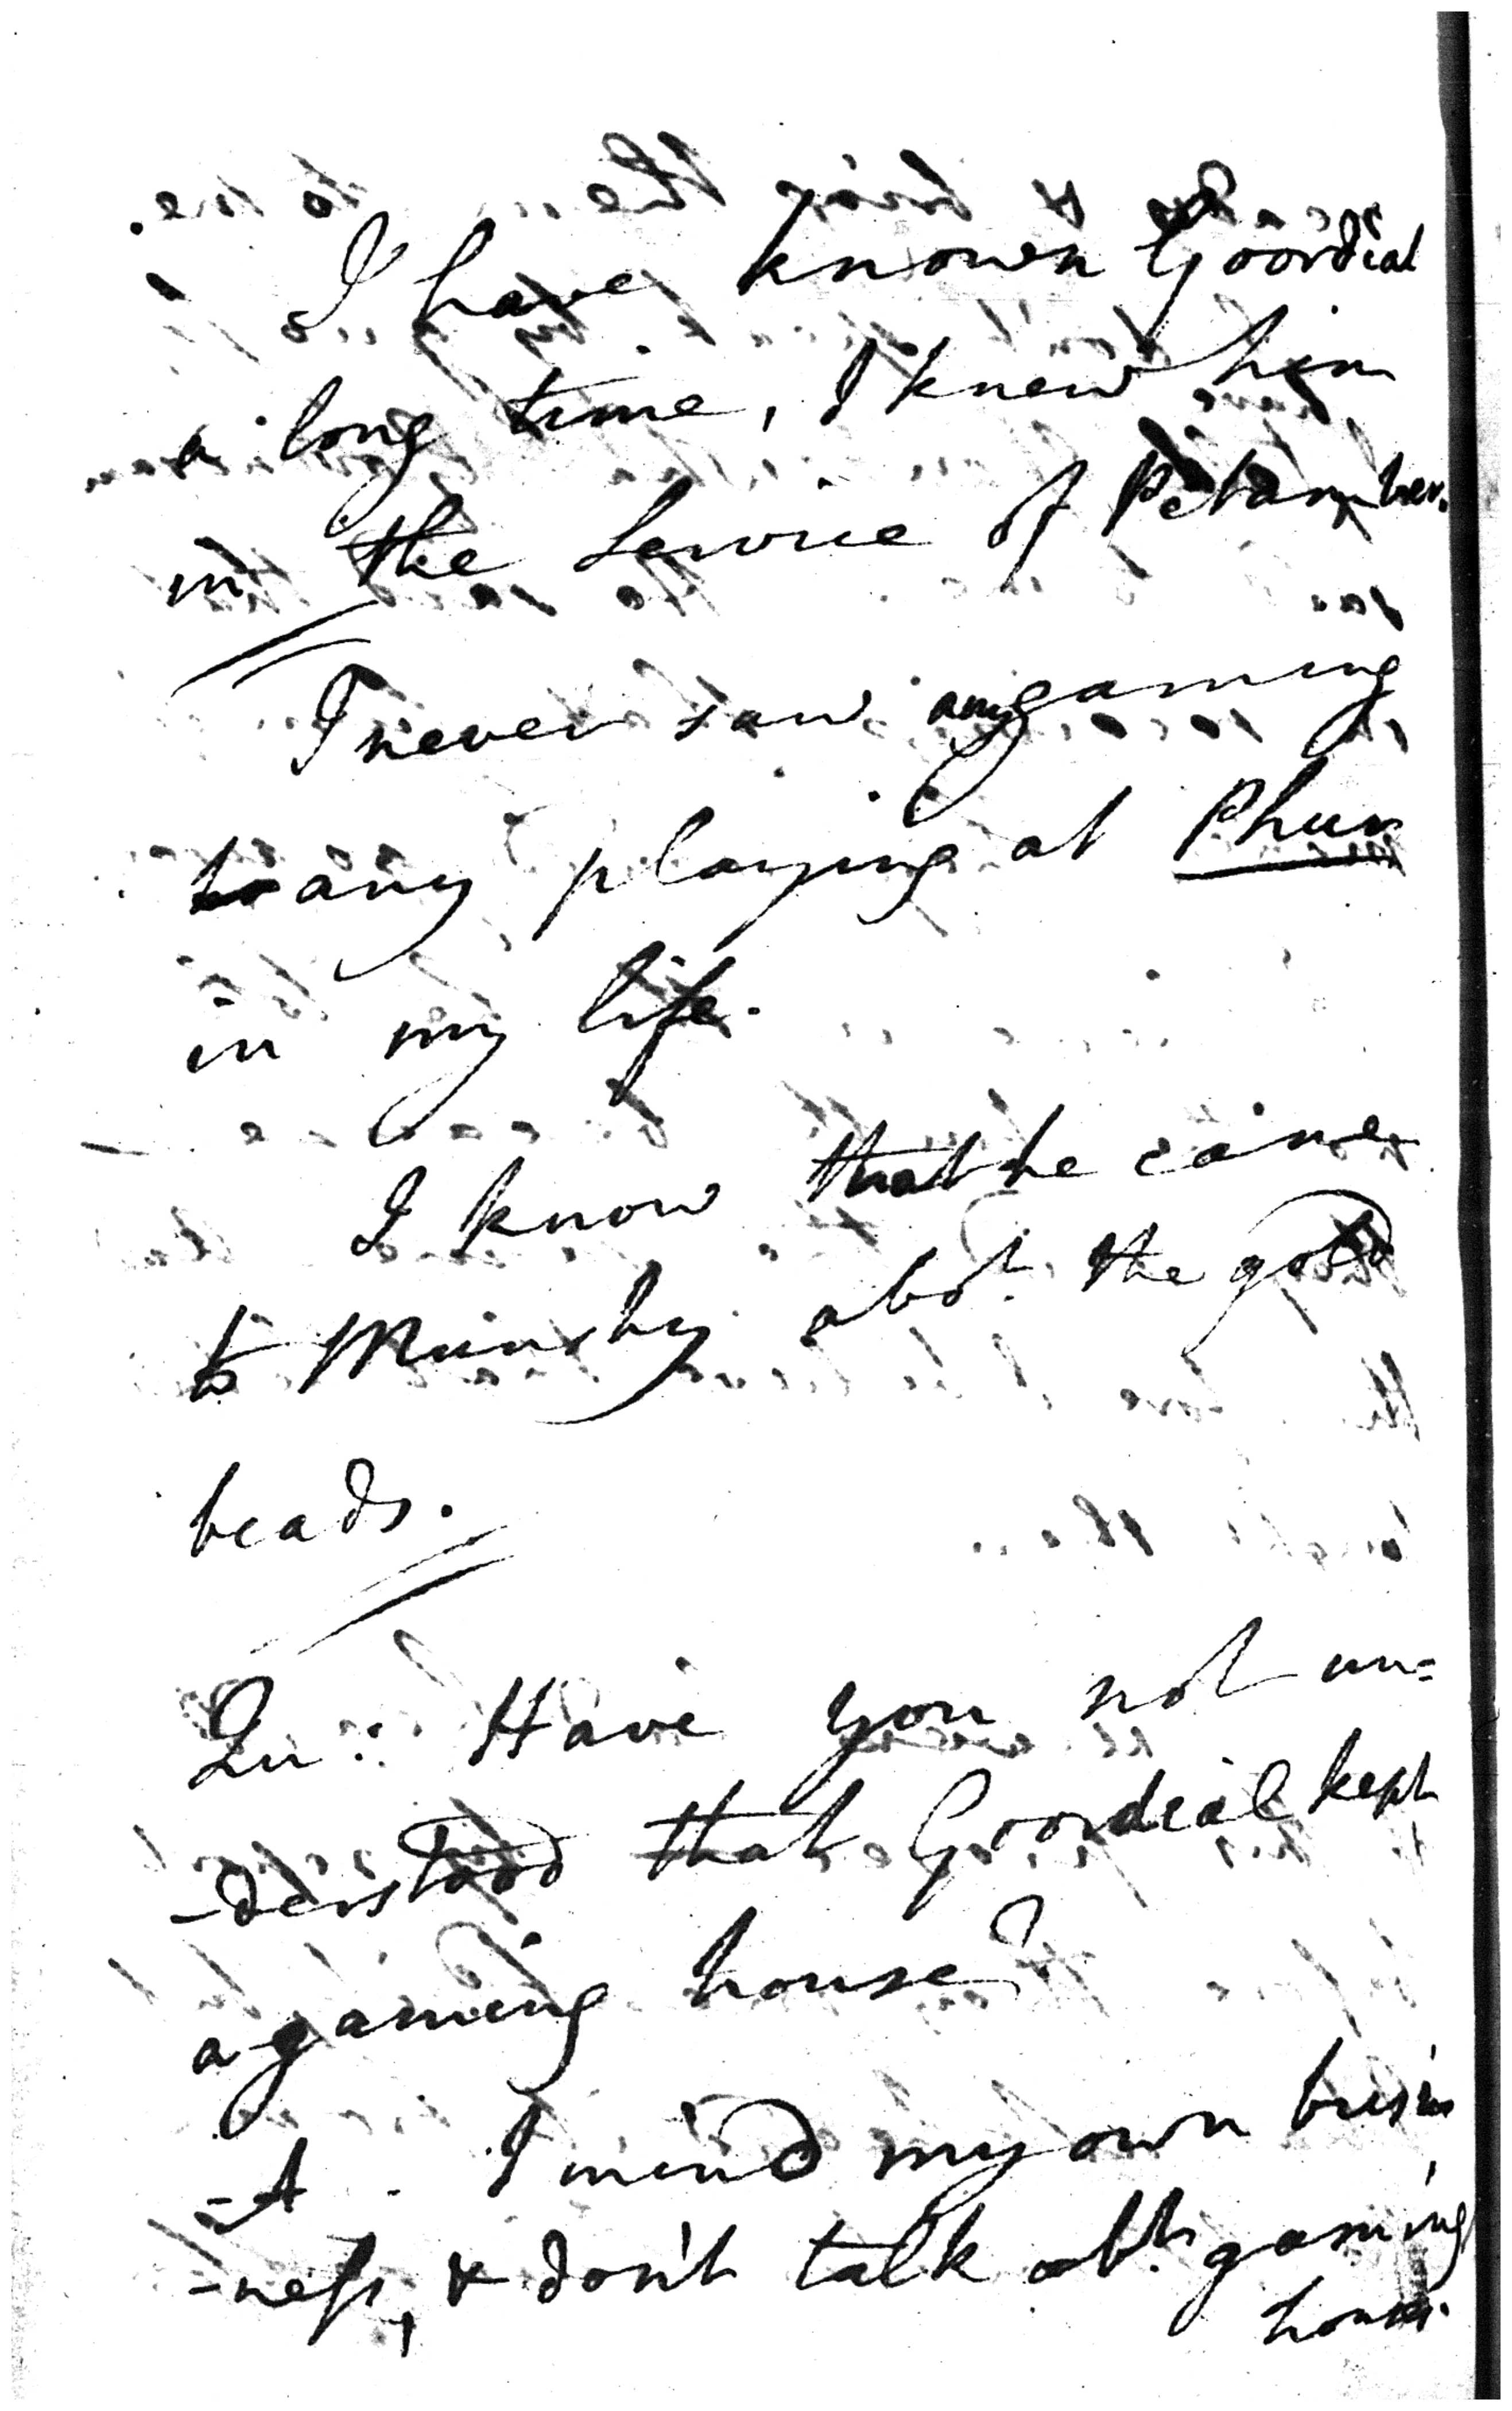 I have known Goordial
a long time, I knew him
in the Service of Petamber.
I never saw any gaming
any playing at Phur
in my life.
I know that he came
to Munshy abot. the gold
beads.
Qu: Have you not un=
-derstood that Goordial kept
a gaming house?
-A. I mind my own busi
-ness, & don't talk abt. gaming
houses.